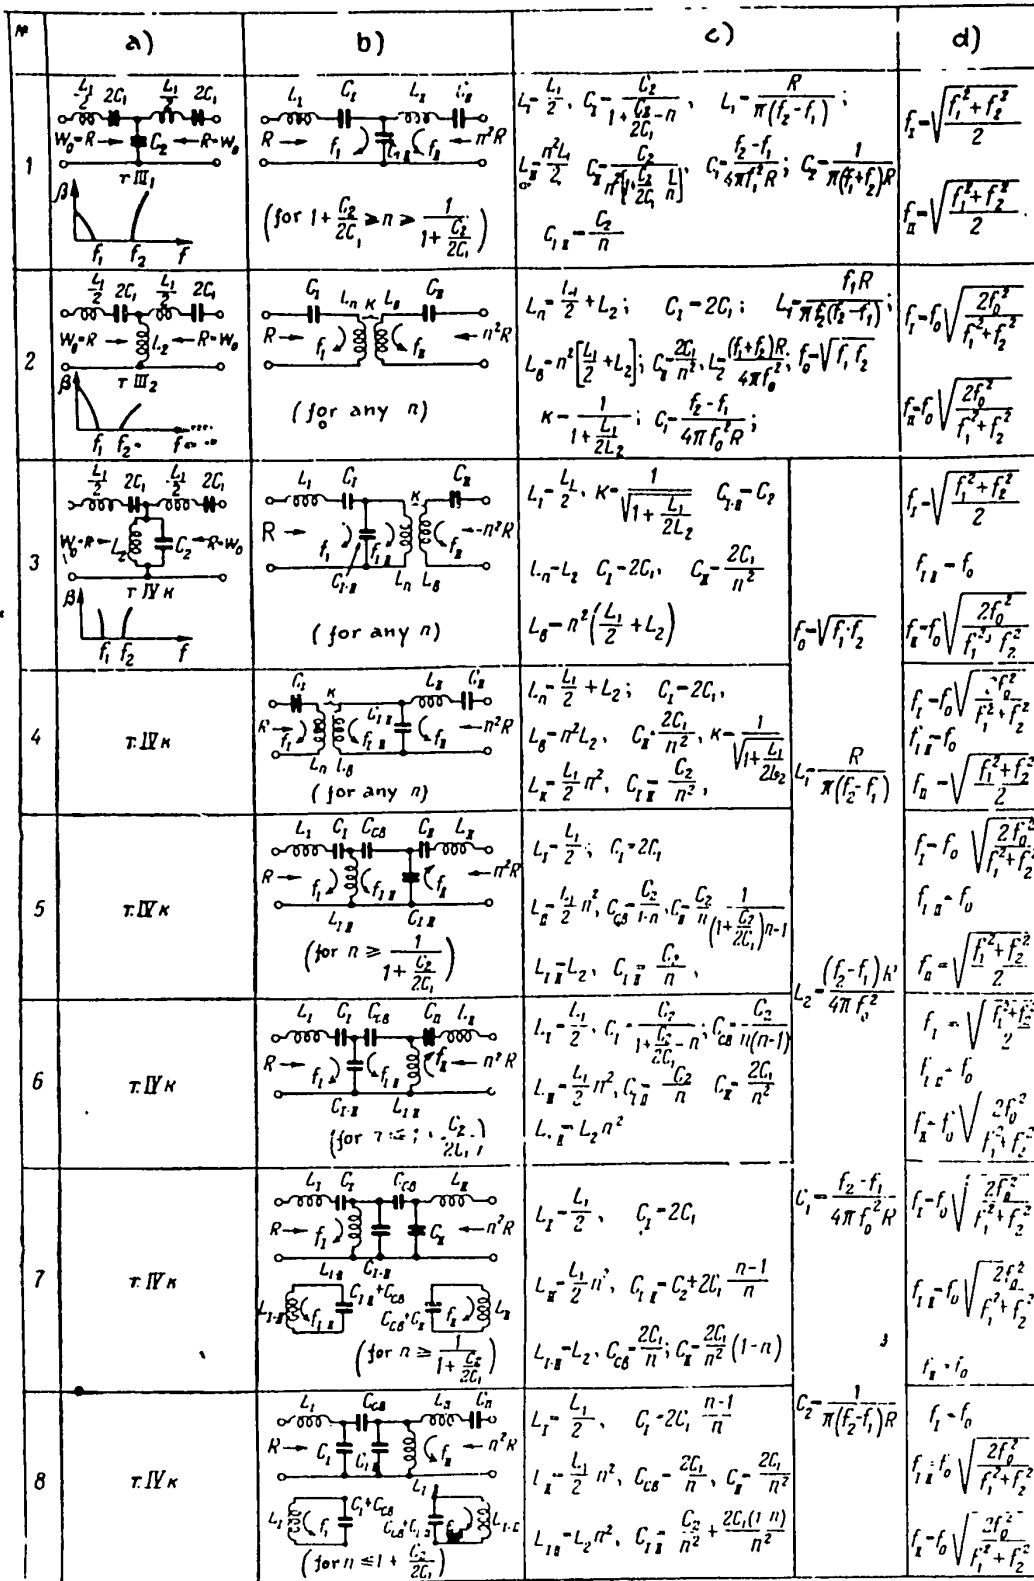 № a) b) c) d)
1
L₁/2 2C₁ L₁/2 2C₁
W₀=R → C₂ ← R=W₀
т III₁
β f₁ f₂ f
L_I C_I L_II C_II
R → f_I C_I.II f_II ← n²R
(for 1 + C₂/2C₁ ≥ n ≥ 1/(1 + C₂/2C₁))
L_I = L₁/2, C_I = C₂/(1 + C₂/2C₁ − n), L₁ = R/π(f₂−f₁);
L_II = n²L₁/2
C₁ = (f₂−f₁)/4πf₁²R; C₂ = 1/π(f₁+f₂)R
C_I II = C₂/n
f_I = √((f₁²+f₂²)/2)
f_II = √((f₁²+f₂²)/2)
2
L₁/2 2C₁ L₁/2 2C₁
W₀=R → L₂ ← R=W₀
т III₂
β f₁ f₂ f
C_I L_п к L_в C_II
R → f_I f_II ← n²R
(for any n)
L_п = L₁/2 + L₂; C_I = 2C₁; L₁ = f₁R/πf₀²(f₂−f₁);
L_в = n²[L₁/2 + L₂]; C_II = 2C₁/n², L₂ = (f₁+f₂)R/4πf₀²; f₀ = √f₁f₂
к = 1/(1 + L₁/2L₂); C₁ = (f₂−f₁)/4πf₀²R;
f_I = f₀√(2f₀²/(f₁²+f₂²))
f_II = f₀√(2f₀²/(f₁²+f₂²))
3
L₁/2 2C₁ L₁/2 2C₁
W₀=R → L₂ C₂ ← R=W₀
т IVк
β f₁ f₂ f
L_I C_I к C_II
R → f_I f_I II f_II ← n²R
C_I·II L_п L_в
(for any n)
L_I = L₁/2, к = 1/√(1 + L₁/2L₂) C_I·II = C₂
L_п = L₂ C_I = 2C₁, C_II = 2C₁/n²
L_в = n²(L₁/2 + L₂)
f₀ = √f₁·f₂
f_I = √((f₁²+f₂²)/2)
f_I II = f₀
f_II = f₀√(2f₀²/(f₁²+f₂²))
4
т. IVк
C_I к L_II C_II
R → f_I f_I II C_I II f_II ← n²R
L_п L_в
(for any n)
L_п = L₁/2 + L₂; C_I = 2C₁,
L_в = n²L₂, C_II = 2C₁/n², к = 1/√(1 + L₁/2L₂)
L_II = L₁/2 n², C_I II = C₂/n²,
L₁ = R/π(f₂−f₁)
f_I = f₀√(2f₀²/(f₁²+f₂²))
f_I II = f₀
f_II = √((f₁²+f₂²)/2)
5
т. IVк
L_I C_I C_св C_II L_II
R → f_I f_I II f_II ← n²R
L_I II C_I·II
(for n ≥ 1/(1 + C₂/2C₁))
L_I = L₁/2; C_I = 2C₁
L_II = L₁/2 n², C_св = C₂/(1−n), C_II = C₂/n · 1/((1 + C₂/2C₁)n−1)
L_I II = L₂, C_I II = C₂/n,
L₂ = (f₂−f₁)R/4πf₀²
f_I = f₀√(2f₀²/(f₁²+f₂²))
f_I II = f₀
f_II = √((f₁²+f₂²)/2)
6
т. IVк
L_I C_I C_св C_II L_II
R → f_I f_I II f_II ← n²R
C_I·II L_I II
L_I = L₁/2, C_I = C₂/(1 + C₂/2C₁ − n); C_св = C₂/n(n−1)
L_II = L₁/2 n², C_I II = C₂/n C_II = 2C₁/n²
L_I II = L₂n²
f_I = √((f₁²+f₂²)/2)
f_I II = f₀
f_II = f₀√(2f₀²/(f₁²+f₂²))
7
т. IVк
L_I C_I C_св L_II
R → f_I C_II ← n²R
L_I·II C_I·II
L_I·II f_I II C_I II + C_св C_св + C_II f_II L_II
(for n ≥ 1/(1 + C₂/2C₁))
L_I = L₁/2, C_I = 2C₁
L_II = L₁/2 n², C_I II = C₂ + 2C₁ (n−1)/n
L_I·II = L₂, C_св = 2C₁/n; C_II = 2C₁/n² (1−n)
C₁ = (f₂−f₁)/4πf₀²R
f_I = f₀√(2f₀²/(f₁²+f₂²))
f_I II = f₀√(2f₀²/(f₁²+f₂²))
f_II = f₀
8
т. IVк
L_I C_св L_II C_II
R → C_I C_I II f_II ← n²R
L_I f_I C_I + C_св
(for n ≤ 1 + C₂/2C₁)
L_I = L₁/2, C_I = 2C₁ (n−1)/n
L_II = L₁/2 n², C_св = 2C₁/n, C_II = 2C₁/n²
L_I II = L₂n², C_I II = C₂/n² + 2C₁(1−n)/n²
C₂ = 1/π(f₂−f₁)R
f_I = f₀
f_I II = f₀√(2f₀²/(f₁²+f₂²))
f_II = f₀√(2f₀²/(f₁²+f₂²))